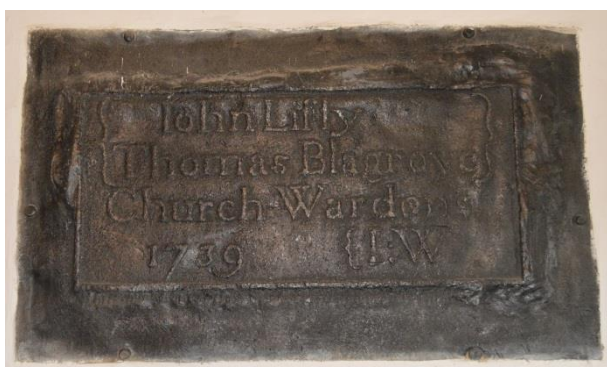 { Iohn Lifly }
{Thomas Blagrove}
Church-Wardens
1739 {I:W